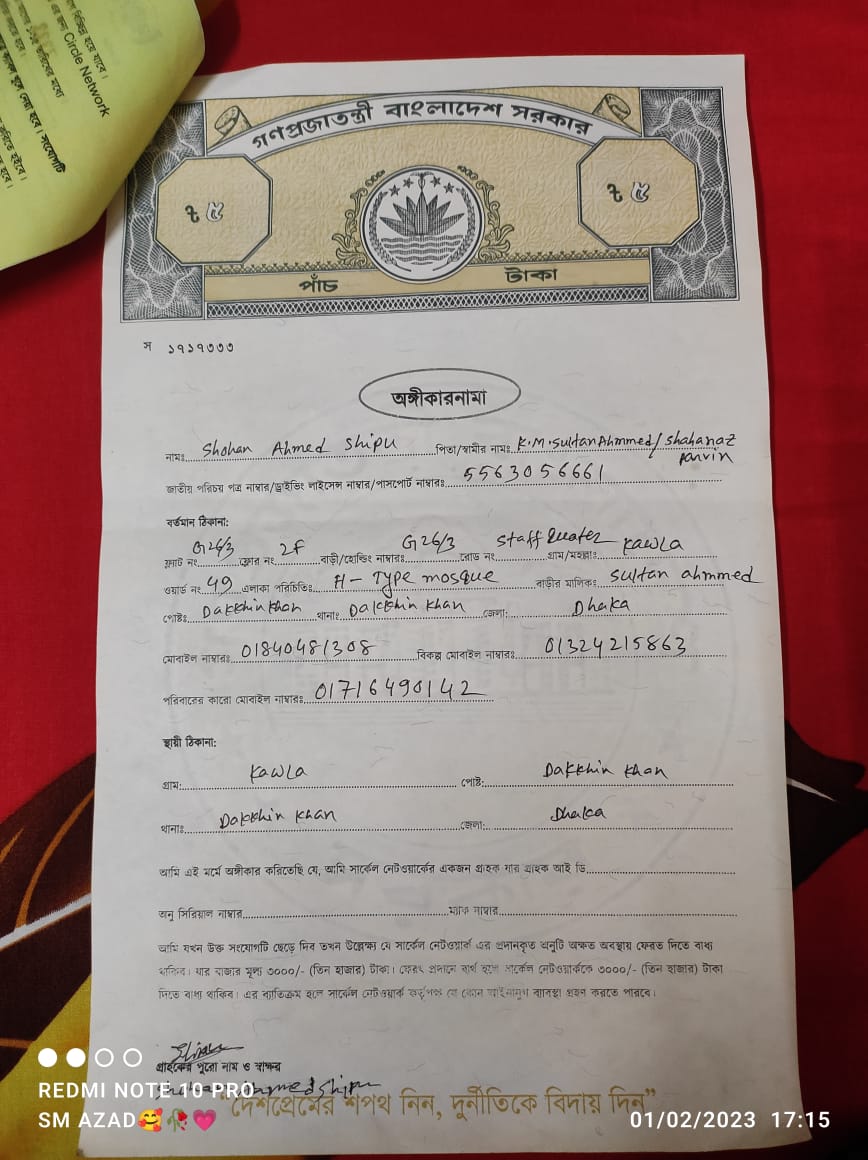 Circle Network
গণপ্রজাতন্ত্রী বাংলাদেশ সরকার
৳ ৫ ৳ ৫
পাঁচ টাকা
স ১৭১৭৩৩৩
অঙ্গীকারনামা
নামঃ Shohan Ahmed Shipu পিতা/স্বামীর নামঃ K.M.Sultan Ahmmed/ Shahanaz Parvin
জাতীয় পরিচয় পত্র নাম্বার/ড্রাইভিং লাইসেন্স নাম্বার/পাসপোর্ট নাম্বারঃ 5563056661
বর্তমান ঠিকানা:
ফ্লাট নং G26/3 ফ্লোর নং 2F বাড়ী/হোল্ডিং নাম্বারঃ G26/3 রোড নং Staff Quater গ্রাম/মহল্লাঃ Kawla
ওয়ার্ড নং 49 এলাকা পরিচিতিঃ H-Type mosque বাড়ীর মালিকঃ Sultan ahmmed
পোষ্টঃ Dakkhin Khan থানাঃ Dakkhin Khan জেলা: Dhaka
মোবাইল নাম্বারঃ 01840481308 বিকল্প মোবাইল নাম্বারঃ 01324215863
পরিবারের কারো মোবাইল নাম্বারঃ 01716490142
স্থায়ী ঠিকানা:
গ্রাম: Kawla পোষ্ট: Dakkhin Khan
থানাঃ Dakkhin Khan জেলা: Dhaka
আমি এই মর্মে অঙ্গীকার করিতেছি যে, আমি সার্কেল নেটওয়ার্কের একজন গ্রাহক যার গ্রাহক আই ডি
অনু সিরিয়াল নাম্বার ম্যাক নাম্বার
আমি যখন উক্ত সংযোগটি ছেড়ে দিব তখন উল্লেক্ষ্য যে সার্কেল নেটওয়ার্ক এর প্রদানকৃত অনুটি অক্ষত অবস্থায় ফেরত দিতে বাধ্য
থাকিব। যার বাজার মূল্য ৩০০০/- (তিন হাজার) টাকা। ফেরৎ প্রদানে ব্যর্থ হলে সার্কেল নেটওয়ার্ককে ৩০০০/- (তিন হাজার) টাকা
দিতে বাধ্য থাকিব। এর ব্যতিক্রম হলে সার্কেল নেটওয়ার্ক কর্তৃপক্ষ যে কোন আইনানুগ ব্যাবস্থা গ্রহন করতে পারবে।
গ্রাহকের পুরো নাম ও স্বাক্ষর
Shohan Ahmed Shipu
"দেশপ্রেমের শপথ নিন, দুর্নীতিকে বিদায় দিন"
REDMI NOTE 10 PRO
SM AZAD🥰🥀💗 01/02/2023 17:15